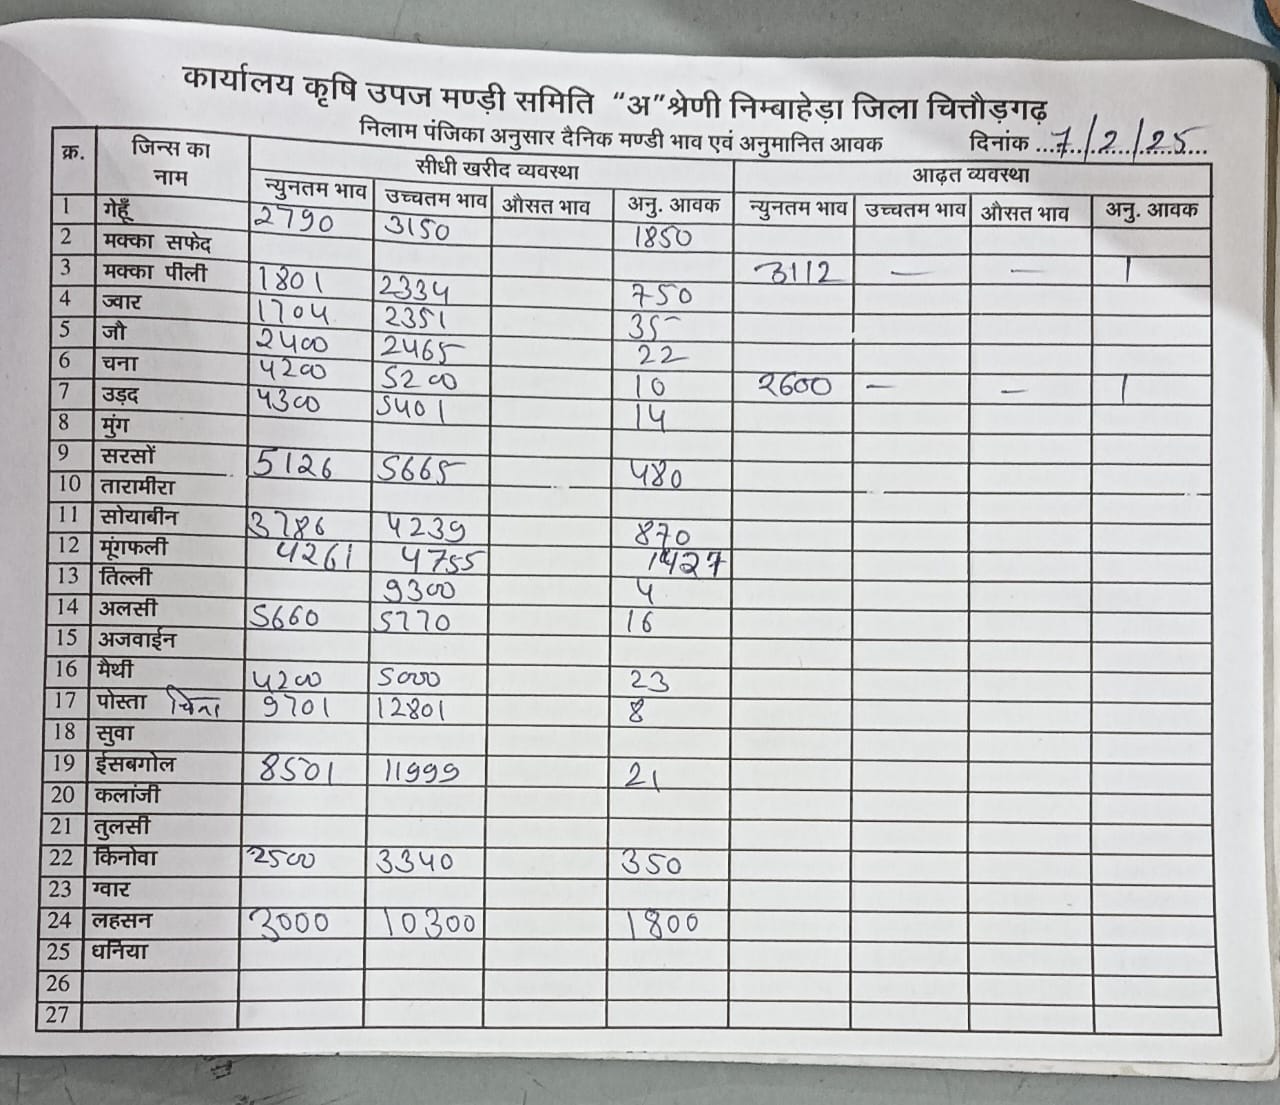 कार्यालय कृषि उपज मण्डी समिति "अ" श्रेणी निम्बाहेड़ा जिला चित्तौड़गढ़
निलाम पंजिका अनुसार दैनिक मण्डी भाव एवं अनुमानित आवक दिनांक ...7/2/25...
क्र. जिन्स का नाम सीधी खरीद व्यवस्था आढ़त व्यवस्था
न्युनतम भाव उच्चतम भाव औसत भाव अनु. आवक न्युनतम भाव उच्चतम भाव औसत भाव अनु. आवक
1 गेहूँ 2790 3150 1850
2 मक्का सफेद 3112 — — 1
3 मक्का पीली 1801 2334 750
4 ज्वार 1704 2351 35
5 जौ 2400 2465 22
6 चना 4200 5200 10 2600 — — 1
7 उड़द 4300 5401 14
8 मुंग
9 सरसों 5126 5665 480
10 तारामीरा
11 सोयाबीन 3786 4239 870
12 मूंगफली 4261 4755 1427
13 तिल्ली 9300 4
14 अलसी 5660 5770 16
15 अजवाईन
16 मैथी 4200 5000 23
17 पोस्ता 9701 12801 8
18 सुवा
19 ईसबगोल 8501 11999 21
20 कलांजी
21 तुलसी
22 किनोवा 2500 3340 350
23 ग्वार
24 लहसन 3000 10300 1800
25 धनिया
26
27